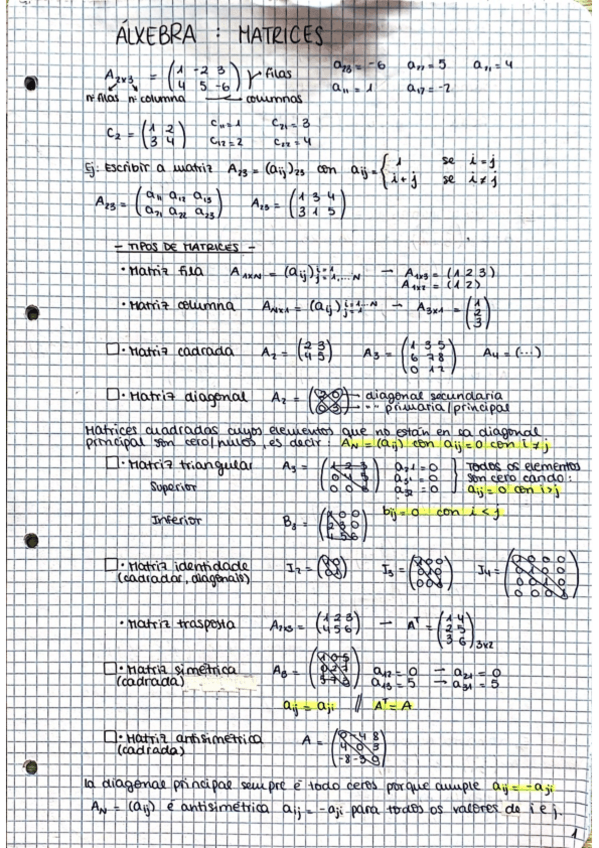 ÁLXEBRA : MATRICES
A₂ₓ₃ = (1 -2 3 / 4 5 -6) filas a₂₃ = -6 a₂₂ = 5 a₂₁ = 4
nº filas nº columna columnas a₁₁ = 1 a₁₂ = -2
C₂ = (1 2 / 3 4) c₁₁ = 1 c₂₁ = 3
c₁₂ = 2 c₂₂ = 4
Ej: Escribir a matriz A₂₃ = (aij)₂₃ con aij = { 1 se i = j
i + j se i ≠ j
A₂₃ = (a₁₁ a₁₂ a₁₃ / a₂₁ a₂₂ a₂₃) A₂₃ = (1 3 4 / 3 1 5)
- TIPOS DE MATRICES -
· Matriz fila A₁ₓN = (aij) i=1 j=1,...N → A₁ₓ₃ = (1 2 3)
A₁ₓ₂ = (1 2)
· Matriz columna ANₓ₁ = (aij) i=1...N j=1 → A₃ₓ₁ = (1 / 2 / 3)
· Matriz cadrada A₂ = (2 3 / 4 5) A₃ = (1 3 5 / 6 7 8 / 0 1 2) A₄ = (...)
· Matriz diagonal A₂ = (2 0 / 0 3) diagonal secundaria
" " primaria/principal
Matrices cuadradas cuyos elementos que no están en sa diagonal
principal son cero/nulos, es decir: AN = (aij) con aij = 0 con i ≠ j
· Matriz triangular A₃ = (1 2 3 / 0 4 5 / 0 0 6) a₂₁ = 0 a₃₁ = 0 a₃₂ = 0 } Todos os elementos
Superior son cero cando:
aij = 0 con i > j
Inferior B₃ = (1 0 0 / 2 3 0 / 4 5 6) bij = 0 con i < j
· Matriz identidade I₂ = (1 0 / 0 1) I₃ = (1 0 0 / 0 1 0 / 0 0 1) I₄ = (1 0 0 0 / 0 1 0 0 / 0 0 1 0 / 0 0 0 1)
(cadradas, diagonais)
· Matriz trasposta A₂ₓ₃ = (1 2 3 / 4 5 6) → Aᵀ = (1 4 / 2 5 / 3 6)₃ₓ₂
· Matriz simétrica A₃ = (1 0 5 / 0 2 7 / 5 7 3) a₁₂ = 0 → a₂₁ = 0
(cadrada) a₁₃ = 5 → a₃₁ = 5
aij = aji // Aᵀ = A
· Matriz antisimétrica A = (0 -4 8 / 4 0 3 / -8 -3 0)
(cadrada)
la diagonal principal sempre é todo ceros porque cumple aij = -aji
AN = (aij) é antisimétrica aij = -aji para todos os valores de i e j.
1